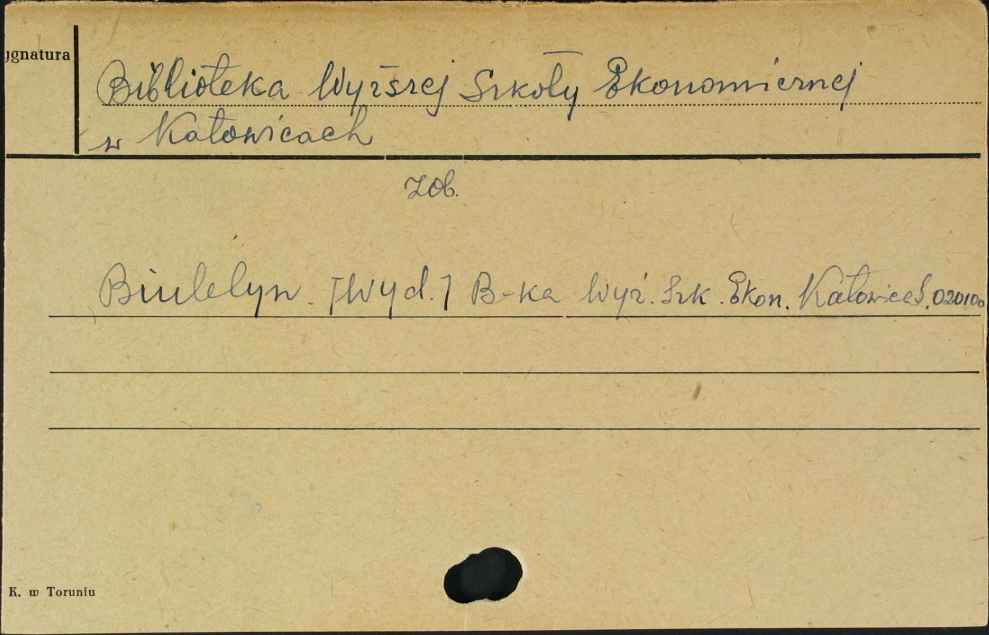 ygnatura
Biblioteka Wyższej Szkoły Ekonomicznej
w Katowicach
zob.
Biuletyn. [Wyd.] B-ka Wyż. Szk. Ekon. Katowice
K. w Toruniu